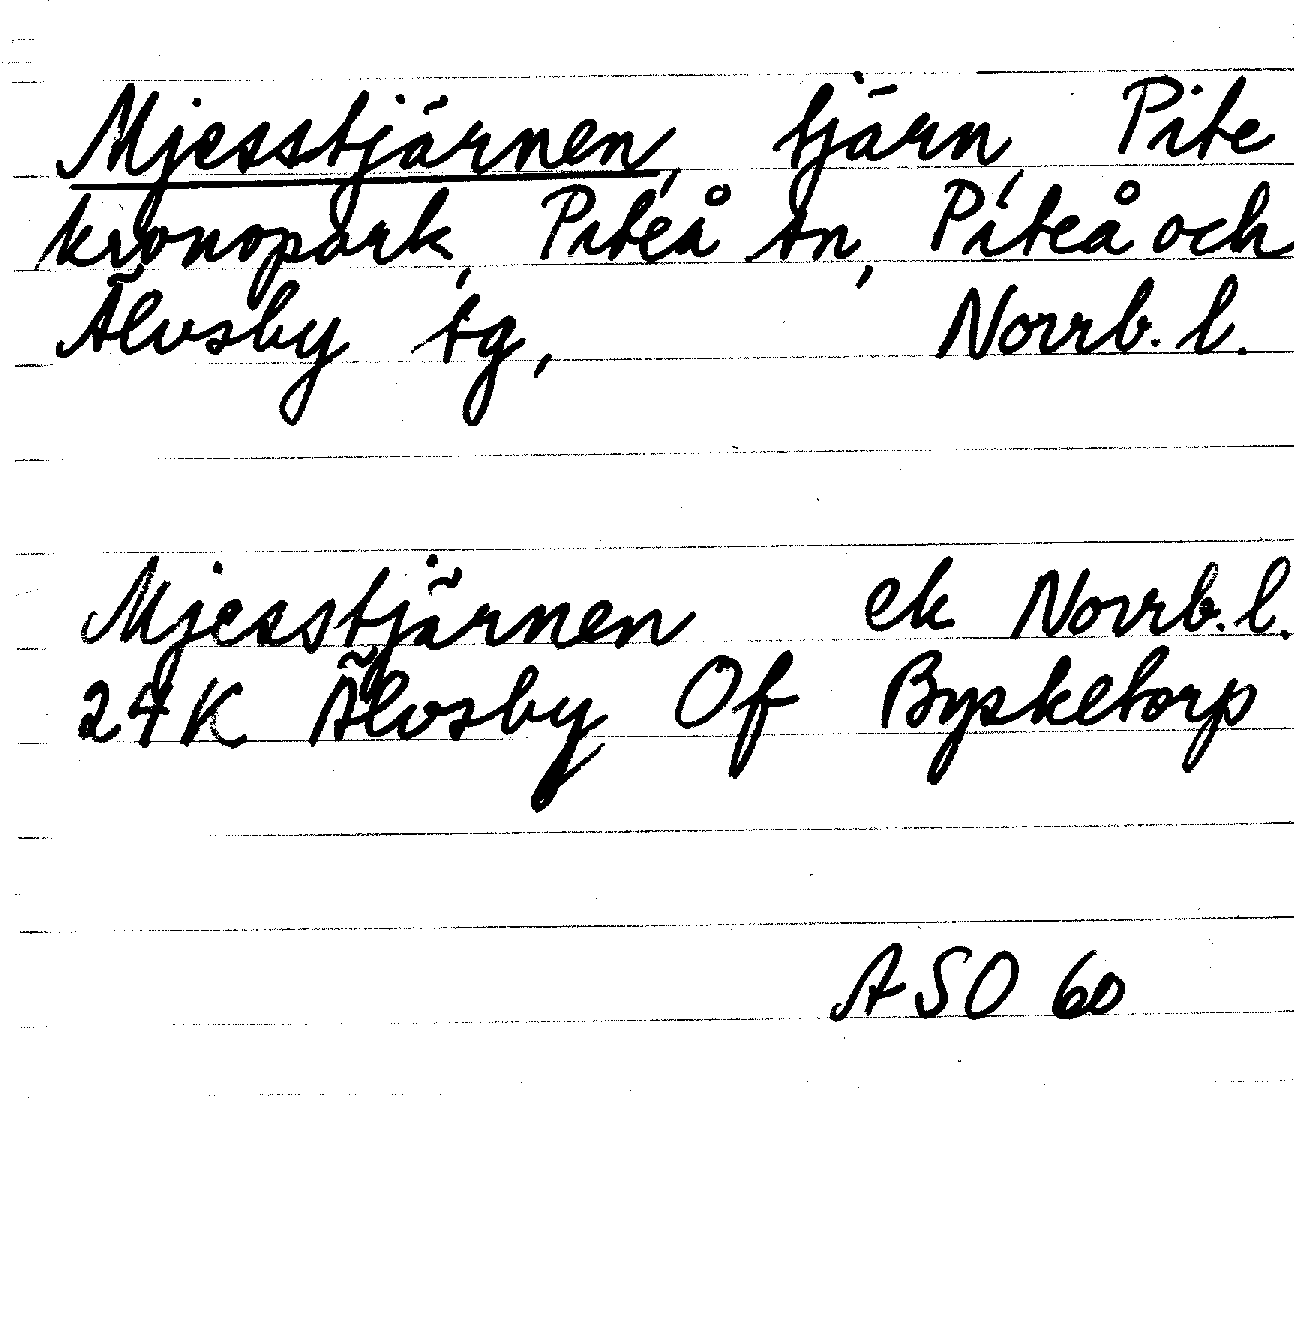 Mjesstjärnen, tjärn, Pite
kronopark, Piteå sn, Piteå och
Älvsby tg, Norrb. l.
Mjesstjärnen ek Norrb. l.
24K Älvsby Of Bysketorp
ASO 60